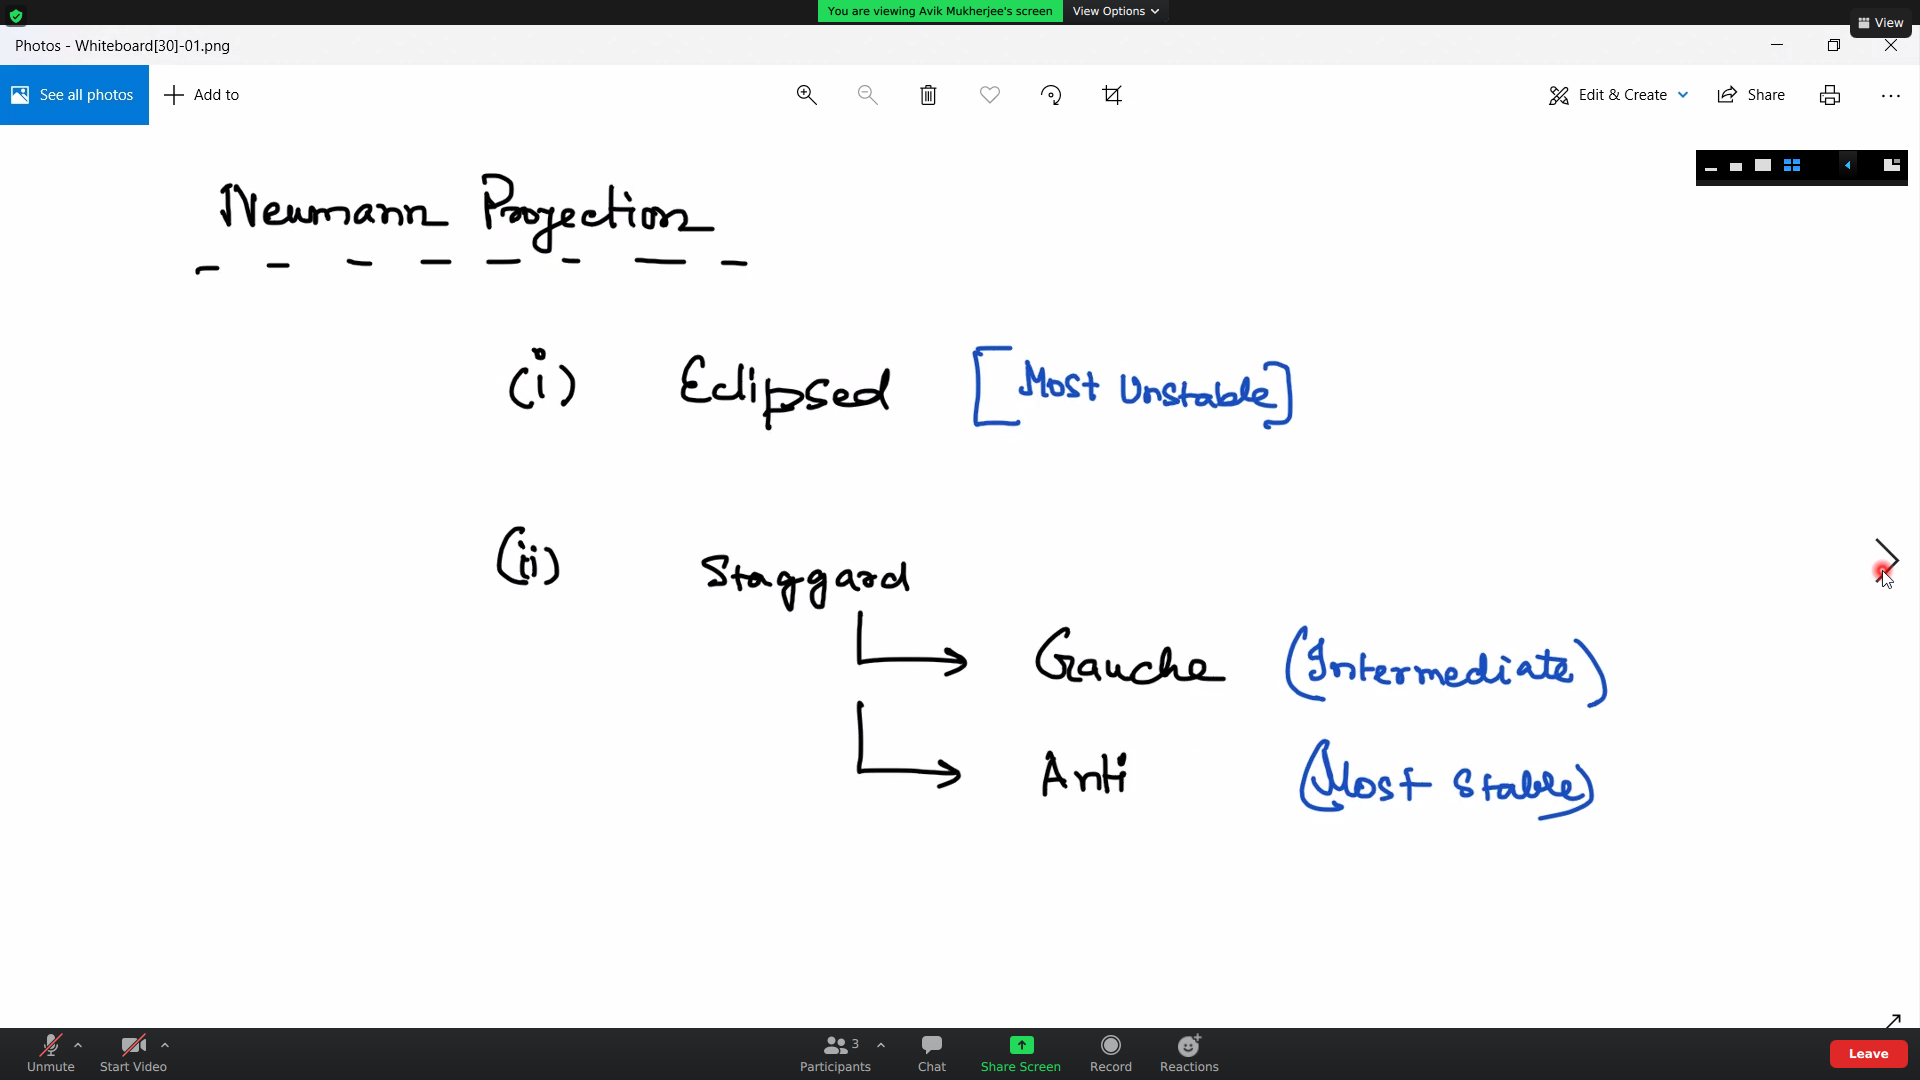 You are viewing Avik Mukherjee's screen View Options
View
Photos - Whiteboard[30]-01.png
See all photos Add to Edit & Create Share
Neumann Projection
(i) Eclipsed [Most Unstable]
(ii) Staggard
Gauche (Intermediate)
Anti (Most Stable)
Unmute Start Video Participants 3 Chat Share Screen Record Reactions Leave